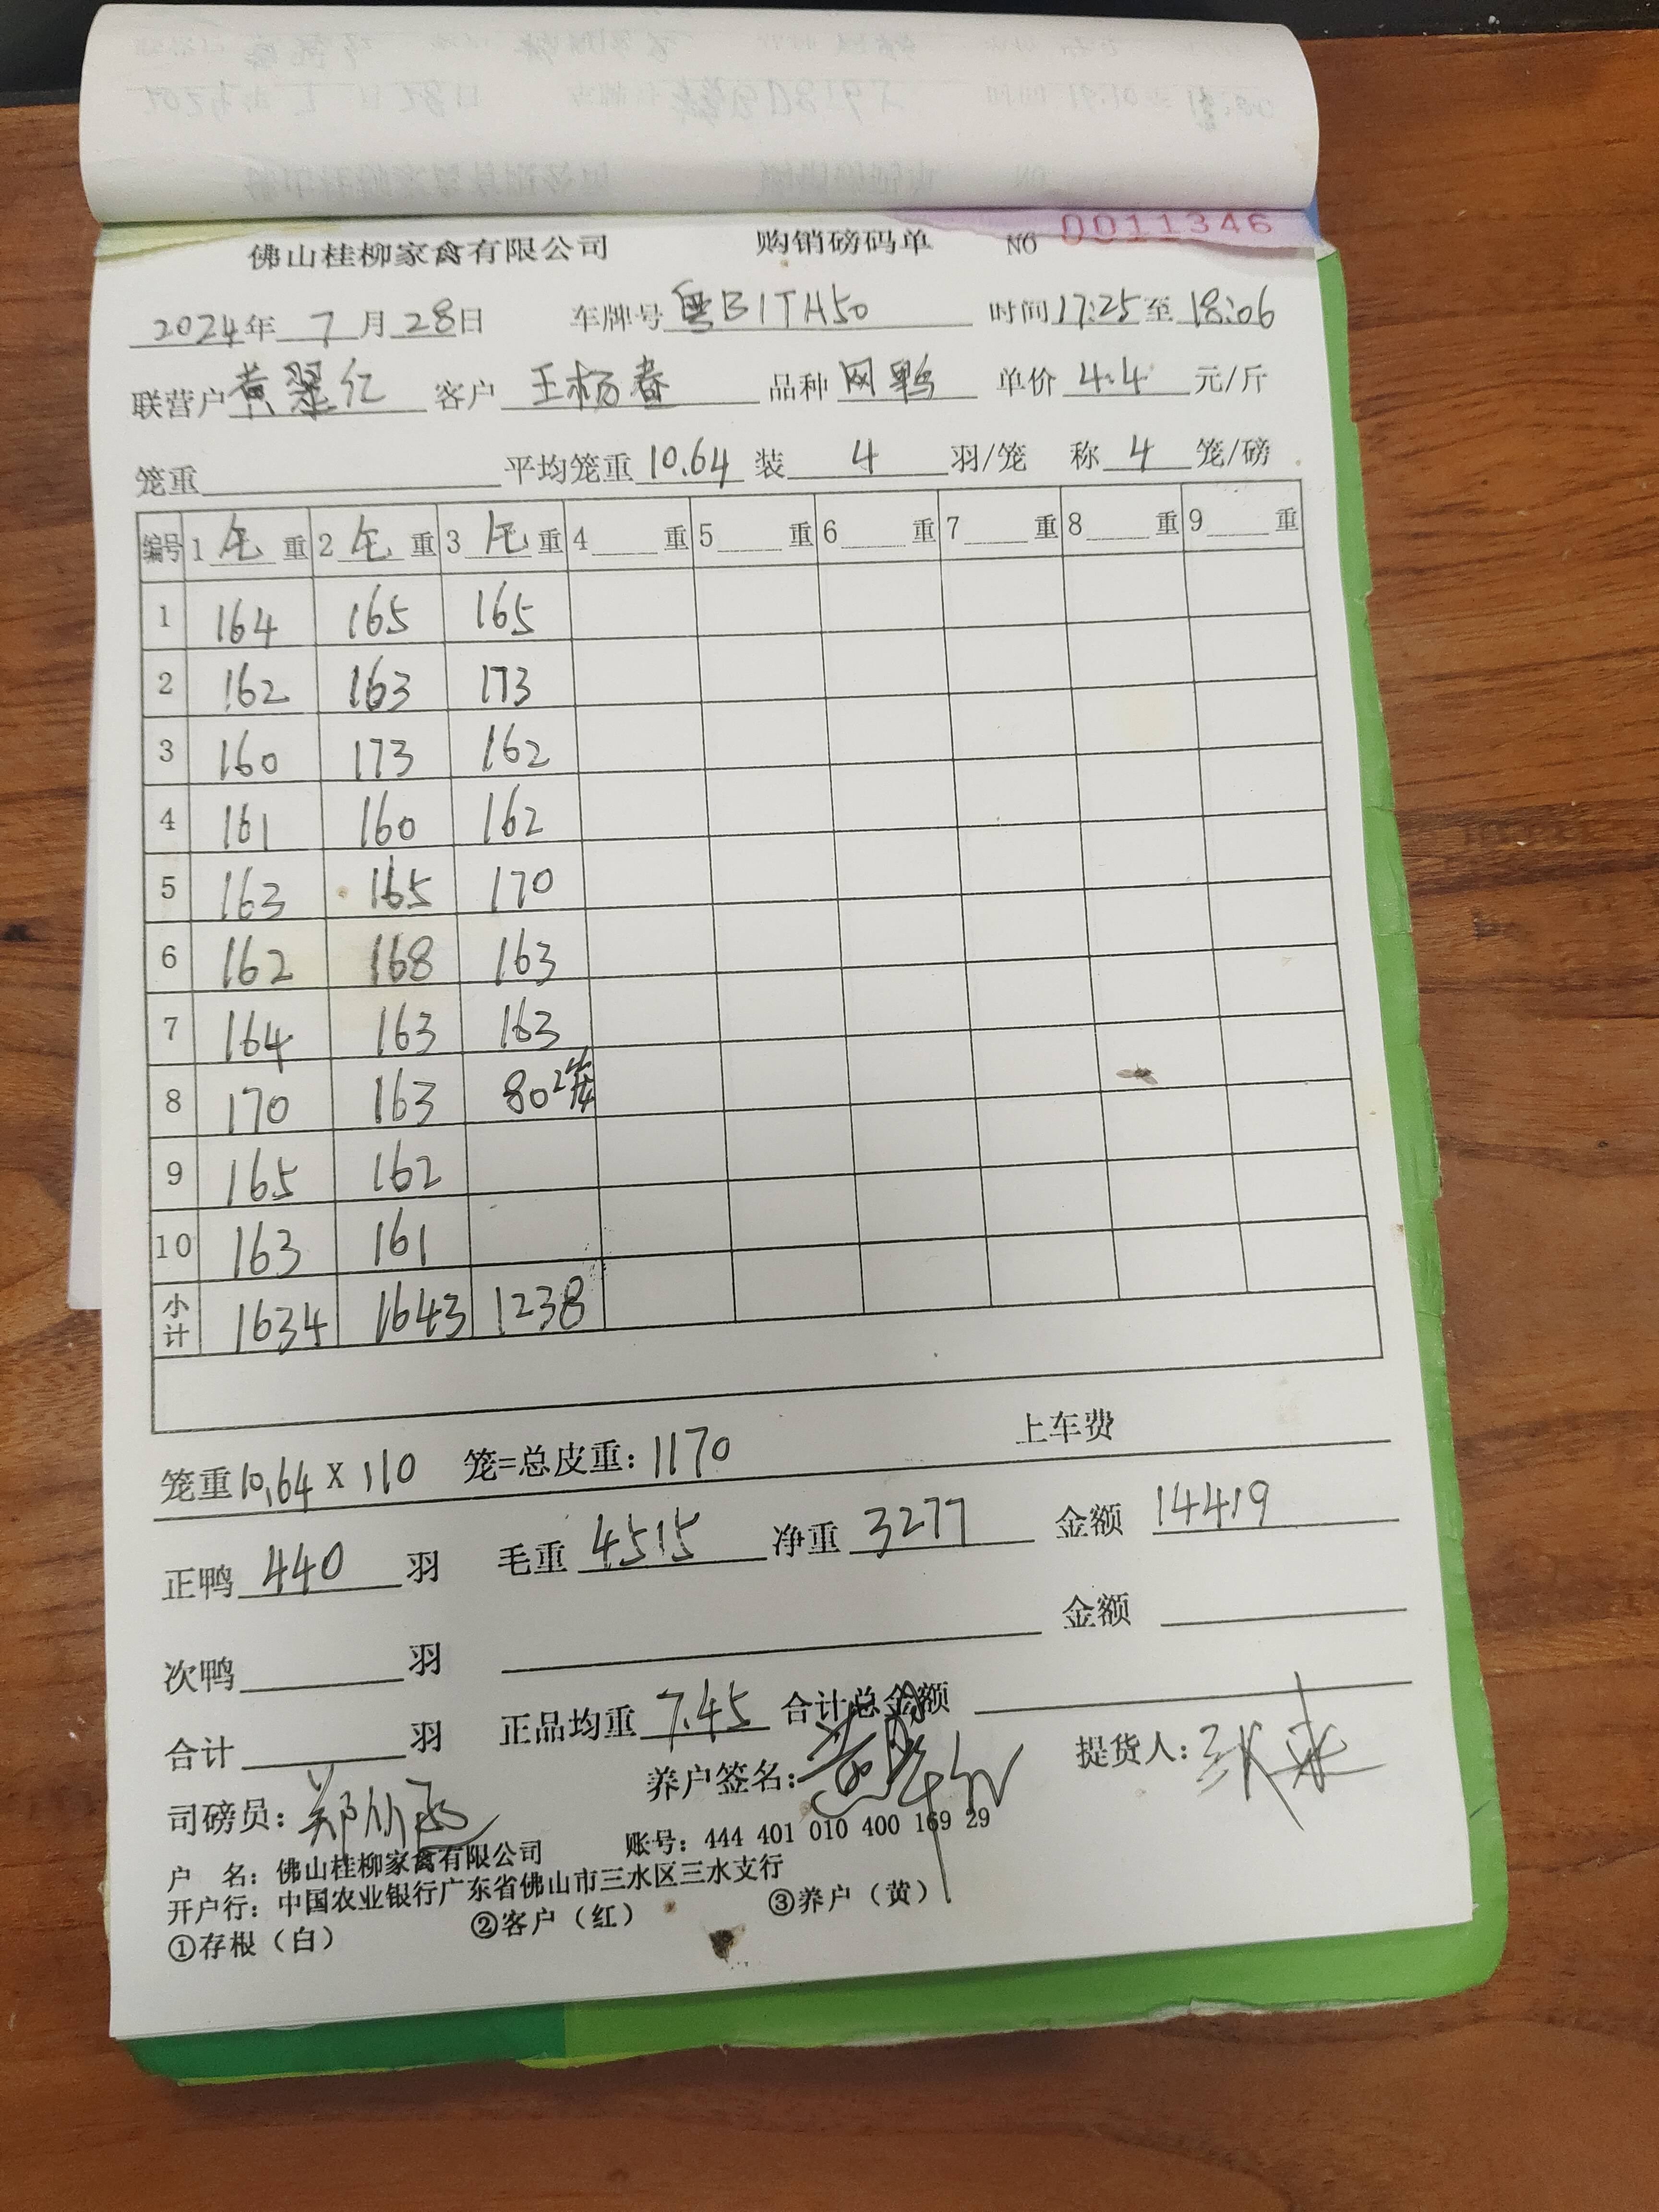 佛山桂柳家禽有限公司 购销磅码单 NO 0011346
2024年 7月28日 车牌号 粤B1TH50 时间17:25至18:06
联营户 黄翠仁 客户 王杨春 品种 网鸭 单价 4.4 元/斤
笼重 平均笼重 10.64 装 4 羽/笼 称 4 笼/磅
编号 1 毛 重 2 毛 重 3 毛 重 4 重 5 重 6 重 7 重 8 重 9 重
1 164 165 165
2 162 163 173
3 160 173 162
4 161 160 162
5 163 165 170
6 162 168 163
7 164 163 163
8 170 163 80 2笼
9 165 162
10 163 161
小计 1634 1643 1238
笼重10.64 X 110 笼=总皮重:1170 上车费
正鸭 440 羽 毛重 4515 净重 3277 金额 14419
次鸭 羽 金额
合计 羽 正品均重 7.45 合计总金额
司磅员: 养户签名: 提货人:
户 名:佛山桂柳家禽有限公司 账号:444 401 010 400 169 29
开户行:中国农业银行广东省佛山市三水区三水支行
①存根(白) ②客户(红) ③养户(黄)